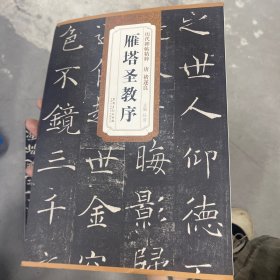 历代碑帖精粹 唐 褚遂良
雁塔圣教序
之世人仰德
晦影歸
世金容
色不鏡三千